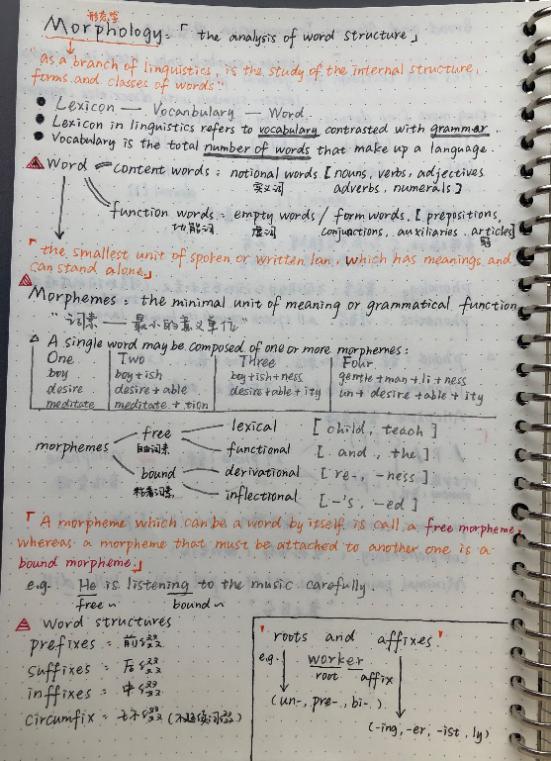 形态学
Morphology: 「the analysis of word structure」
"as a branch of linguistics, is the study of the internal structure,
forms and classes of words"
● Lexicon — Vocanbulary — Word
● Lexicon in linguistics refers to vocabulary contrasted with grammar.
● Vocabulary is the total number of words that make up a language.
Word content words: notional words [nouns, verbs, adjectives
实义词 adverbs, numerals]
function words: empty words / form words. [prepositions,
功能词 虚词 conjunctions, auxiliaries. articles]
「the smallest unit of spoken or written lan. which has meanings and
can stand alone」
Morphemes: the minimal unit of meaning or grammatical function
"词素 — 最小的意义单位"
A single word may be composed of one or more morphemes:
One Two Three Four
boy boy+ish boy+ish+ness gentle+man+li+ness
desire desire+able desire+able+ity un+desire+able+ity
meditate meditate+tion
free lexical [child, teach]
morphemes 自由词素 functional [and, the]
bound derivational [re-, -ness]
粘着词素 inflectional [-'s, -ed]
「A morpheme which can be a word by itself is call a free morpheme,
whereas a morpheme that must be attached to another one is a
bound morpheme.」
e.g. He is listening to the music carefully.
free m bound m
Word structures
prefixes: 前缀
suffixes: 后缀
inffixes: 中缀
circumfix:
'roots and affixes'
e.g. worker
root affix
(un-, pre-, bi-.)
(-ing, -er, -ist, ly)